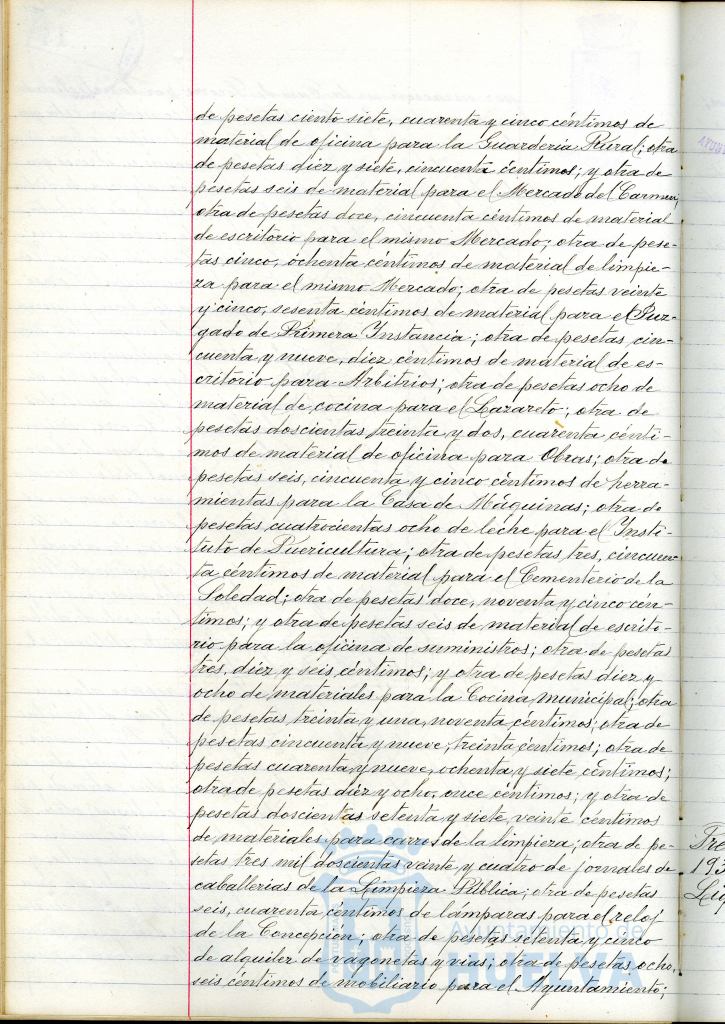 de pesetas ciento siete, cuarenta y cinco céntimos de
material de oficina para la Guardería Rural; otra
de pesetas diez y siete, cincuenta céntimos; y otra de
pesetas seis de material para el Mercado del Carmen;
otra de pesetas doce, cincuenta céntimos de material
de escritorio para el mismo Mercado; otra de pese-
tas cinco, ochenta céntimos de material de limpie-
za para el mismo Mercado; otra de pesetas veinte
y cinco, sesenta céntimos de material para el Juz-
gado de Primera Instancia; otra de pesetas cin-
cuenta y nueve, diez céntimos de material de es-
critorio para Arbitrios; otra de pesetas ocho de
material de cocina para el Lazareto; otra de
pesetas doscientas treinta y dos, cuarenta cénti-
mos de material de oficina para Obras; otra de
pesetas seis, cincuenta y cinco céntimos de herra-
mientas para la Casa de Máquinas; otra de
pesetas cuatrocientas ocho de leche para el Insti-
tuto de Puericultura; otra de pesetas tres, cincuen-
ta céntimos de material para el Cementerio de la
Soledad; otra de pesetas doce, noventa y cinco cén-
timos; y otra de pesetas seis de material de escrito-
rio para la oficina de suministros; otra de pesetas
tres, diez y seis céntimos; y otra de pesetas diez y
ocho de materiales para la Cocina municipal; otra
de pesetas treinta y una, noventa céntimos; otra de
pesetas cincuenta y nueve, treinta céntimos; otra de
pesetas cuarenta y nueve, ochenta y siete céntimos;
otra de pesetas diez y ocho, once céntimos; y otra de
pesetas doscientas setenta y siete, veinte céntimos
de materiales para carros de la limpieza; otra de pe-
setas tres mil doscientas veinte y cuatro de jornales de
caballerías de la Limpieza Pública; otra de pesetas
seis, cuarenta céntimos de lámparas para el reloj
de la Concepción; otra de pesetas setenta y cinco
de alquiler de vagonetas y vías; otra de pesetas ocho,
seis céntimos de mobiliario para el Ayuntamiento;
Ayuntamiento de
HUELVA
Tre
193